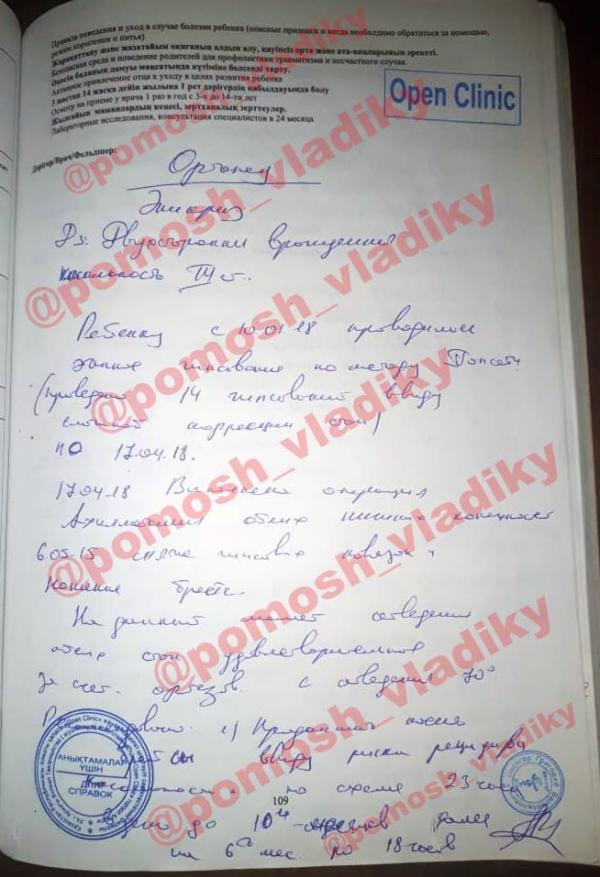 Правила поведения и уход в случае болезни ребенка (опасные признаки и когда необходимо обратиться за помощью,
режим кормления и питья)
Жарақаттану және жазатайым оқиғаның алдын алу, қауіпсіз орта және ата-аналарының әрекеті.
Безопасная среда и поведение родителей для профилактики травматизма и несчастного случая.
Әкенің баланың дамуы мақсатында күтіміне белсенді тарту.
Активное привлечение отца к уходу в целях развития ребенка
3 жастан 14 жасқа дейін жылына 1 рет дәрігердің қабылдауында болу
Осмотр на приеме у врача 1 раз в год с 3-х до 14-ти лет
мамандардың кеңесі, зертханалық зерттеулер.
Лабораторные исследования, консультация специалистов в 24 месяца
Open Clinic
Дәрігер/Врач/Фельдшер:
Ортопед
Эпикриз
Ds: Двухсторонняя врожденная
косолапость IV ст.
Ребенку с 10.01.18 проводилось
этапное гипсование по методу Понсети
(проведено 14 гипсований ввиду
сложной коррекции стоп)
по 17.04.18.
17.04.18 Выполнена операция
Ахиллотомия обеих нижних конечностей
6.05.15 снятие гипсовых повязок,
ношение брейс.
На данный момент отведения
обеих стоп удовлетворительное
За счет с отведения 70°
ношения
ввиду риска рецидива
по схеме 23 часа
до 10 месяцев далее
на 6 мес по 18 часов
109
АНЫҚТАМАЛАР
ҮШІН
ДЛЯ
СПРАВОК
@pomosh_vladiky
@pomosh_vladiky
@pomosh_vladiky
@pomosh_vladiky
@pomosh_vladiky
@pomosh_vladiky